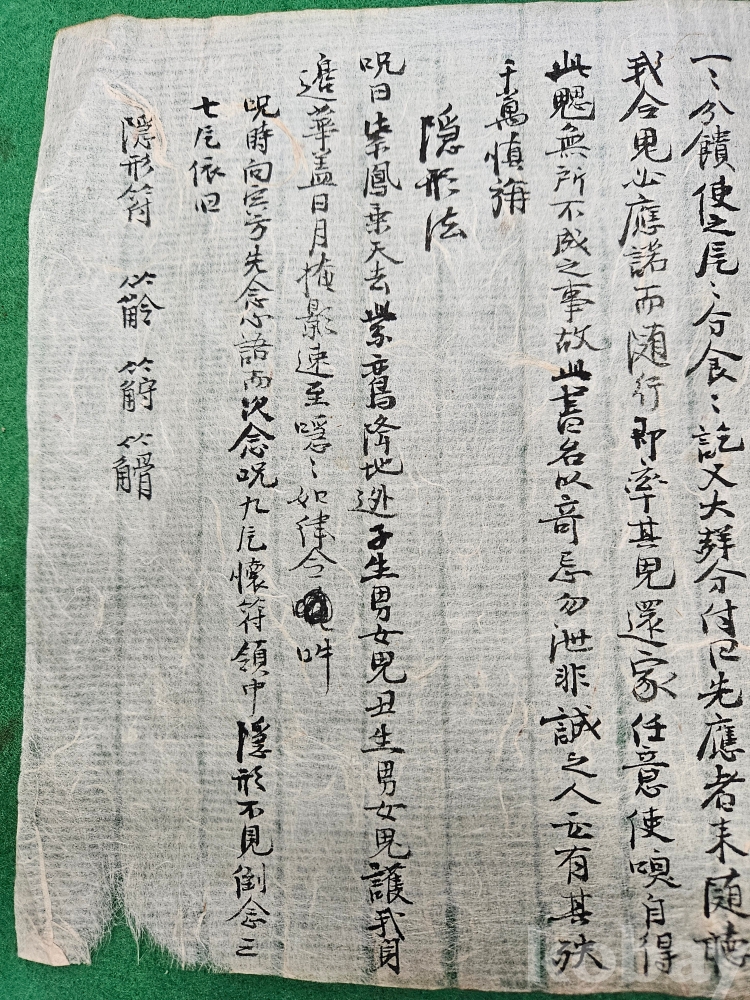 一〻分饋使之厄〻分食〻訖又大辞分付曰先應者来随聴
我合鬼必應諾而随行即率其鬼還家任意使喚自得
此鬼無所不成之事故此書名以奇忌勿泄非誠之人立有其殃
千萬慎旃
隱形法
呪曰紫鳳乘天去紫鸞降地逊子生男女鬼丑生男女鬼護我身
邊華盖日月掩影速至隱〻如律令 吽
呪時向害方先念心語而次念呪九厄懷符領中隱形不見倒念三
七厄依旧
隱形符